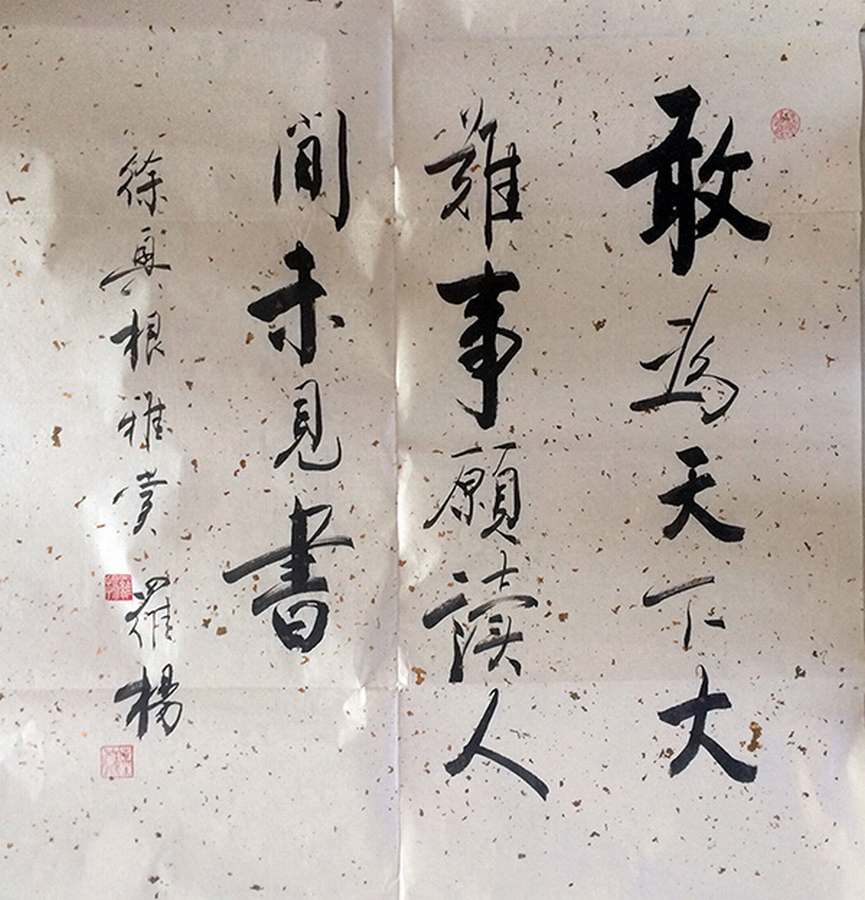 敢為天下大
難事願讀人
間未見書
徐真根雅賞 羅楊